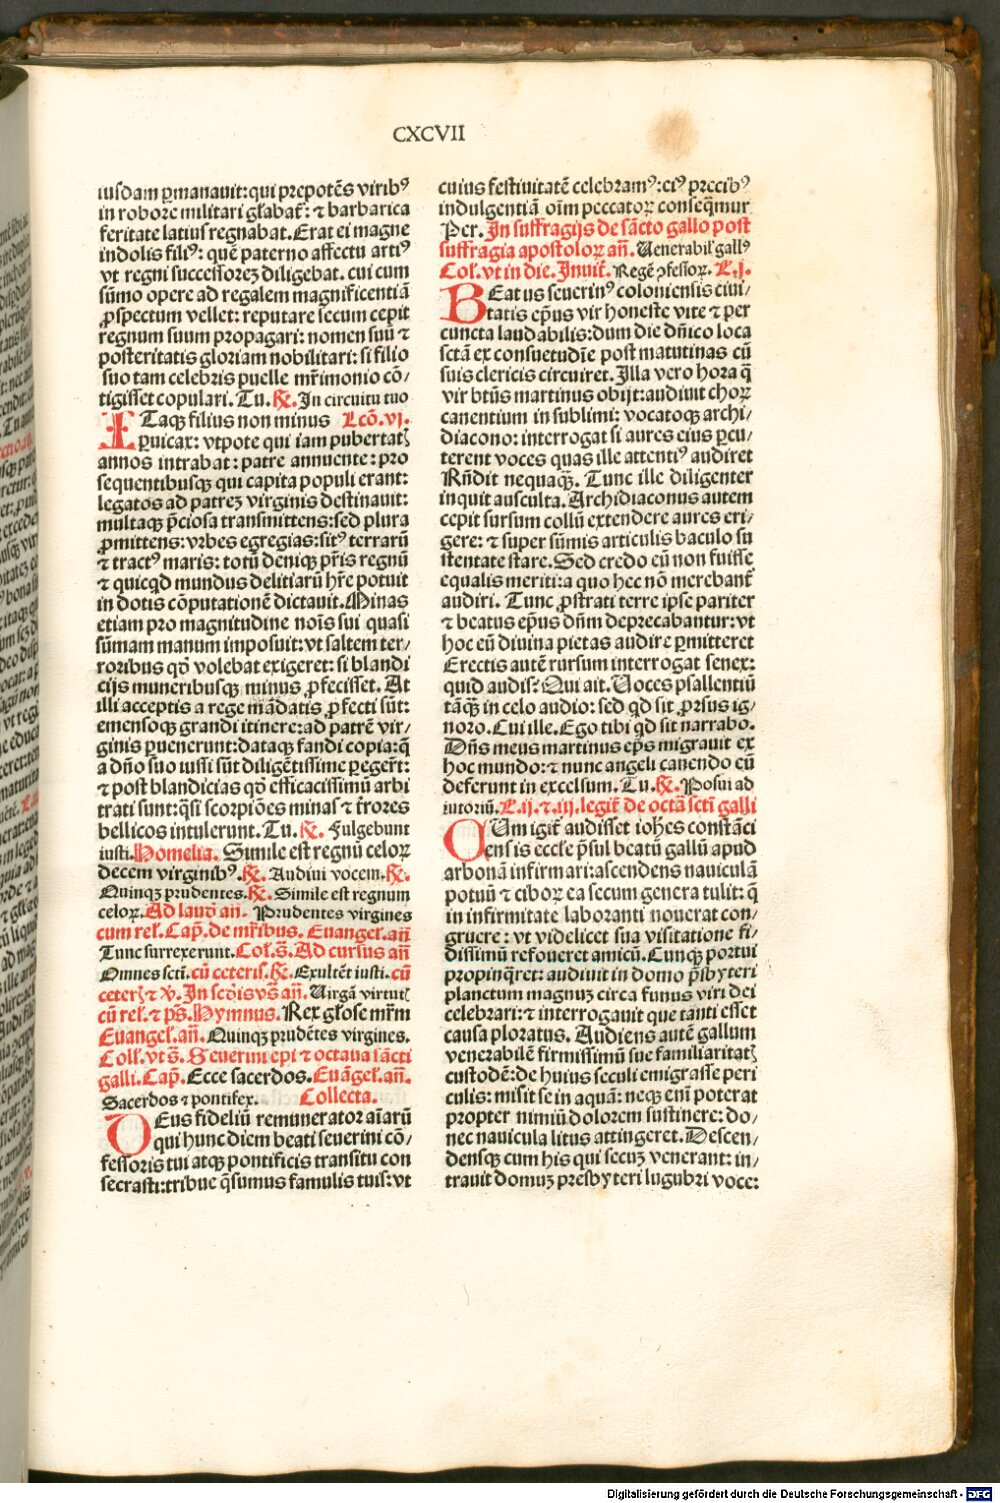 CXCVII
iusdam ꝑmanauit:qui prepotēs viribꝰ
in robore militari gl̄abat̄: ⁊ barbarica
feritate latius regnabat. Erat ei magne
indolis filiꝰ: quē paterno affectu artiꝰ
vt regni successoreꝫ diligebat. cui cum
sūmo opere ad regalem magnificentiā
ꝓspectum vellet: reputare secum cepit
regnum suum propagari: nomen suū ⁊
posteritatis gloriam nobilitari: si filio
suo tam celebris puelle mr̄imonio cō/
tigisset copulari. Tu. ℞. In circuitu tuo
ITaqꝫ filius non minus Lcō. vj.
ꝑuicax: vtpote qui iam pubertatꝭ
annos intrabat: patre annuente: pro
sequentibusqꝫ qui capita populi erant:
legatos ad patreꝫ virginis destinauit:
multaqꝫ p̄ciosa transmittens: sed plura
ꝓmittens: vrbes egregias: sitꝰ terrarū
⁊ tractꝰ maris: totū deniqꝫ pr̄is regnū
⁊ quicqd mundus delitiarū hr̄e potuit
in dotis cōputationē dictauit. Minas
etiam pro magnitudine noīs sui quasi
sūmam manum imposuit: vt saltem ter/
roribus qō volebat exigeret: si blandi
cijs muneribusqꝫ minus ꝓfecisset. At
illi acceptis a rege mādatis ꝓfecti sūt:
emensoqꝫ grandi itinere: ad patrē vir/
ginis ꝑuenerunt: dataqꝫ fandi copia: q̄
a dn̄o suo iussi sūt diligētissime ꝑegert̄:
⁊ post blandicias qō efficacissimū arbi
trati sunt: q̄si scorpiōes minas ⁊ t̄rores
bellicos intulerunt. Tu. ℞. Fulgebunt
iusti. Homelia. Simile est regnū celoꝝ
decem virginibꝰ. ℞. Audiui vocem. ℞.
Quinqꝫ prudentes. ℞. Simile est regnum
celoꝝ. Ad laud̄ an̄. Prudentes virgines
cum rel̄. Cap̄. de mr̄ibus. Euangel̄. an̄
Tunc surrexerunt. Col̄. s̄. Ad cursus an̄
Omnes sctī. cū ceteris. ℞. Exultēt iusti. cū
ceterꝭ ⁊ v̄. In scd̄is vs̄ an̄. Uirgā virtutꝭ
cū rel̄. ⁊ ps̄. Hymnus. Rex gl̄ose mr̄m
Euangel̄. an̄. Quinqꝫ prudētes virgines.
Coll̄. vt s̄. Seuerini epī ⁊ octaua sācti
galli. Cap̄. Ecce sacerdos. Euāgel̄. an̄.
Sacerdos ⁊ pontifex. Collecta.
DEus fideliū remunerator aīarū
qui hunc diem beati seuerini cō/
fessoris tui atqꝫ pontificis transitu con
secrasti: tribue q̄sumus famulis tuis: vt
cuius festiuitatē celebramꝰ: eiꝰ precibꝰ
indulgentiā oīm peccatoꝝ conseq̄mur
Per. In suffragijs de sācto gallo post
suffragia apostoloꝝ an̄. Uenerabil̄ gallꝰ
Col̄. vt in die. Inuit̄. Regē ꝯfessoꝝ. L. j.
BEatus seuerinꝰ coloniensis ciui/
tatis ep̄us vir honeste vite ⁊ per
cuncta laudabilis: dum die dn̄ico loca
sctā ex consuetudīe post matutinas cū
suis clericis circuiret. Illa vero hora q̄
vir bt̄us martinus obijt: audiuit choꝝ
canentium in sublimi: vocatoqꝫ archi/
diacono: interrogat si aures eius ꝑcu/
terent voces quas ille attentiꝰ audiret
Rn̄dit nequaqꝫ̄. Tunc ille diligenter
inquit ausculta. Archidiaconus autem
cepit sursum collū extendere aures eri/
gere: ⁊ super sūmis articulis baculo su
stentate stare. Sed credo eū non fuisse
equalis meriti: a quo hec nō merebant̄
audiri. Tunc ꝓstrati terre ipse pariter
⁊ beatus ep̄us dn̄m deprecabantur: vt
hoc eū diuina pietas audire ꝑmitteret
Erectis autē rursum interrogat senex:
quid audis? Qui ait. Uoces psallentiū
tāqꝫ̄ in celo audio: sed qd sit ꝓrsus ig/
noro. Cui ille. Ego tibi qd sit narrabo.
Dn̄s meus martinus ep̄s migrauit ex
hoc mundo: ⁊ nunc angeli canendo eū
deferunt in excelsum. Tu. ℞. Posui ad
iutoriū. L. ij. ⁊. iij. legit̄ de octā sctī galli
CUm igit̄ audisset ioh̄es constāci
ensis eccl̄e p̄sul beatū gallū apud
arbonā infirmari: ascendens nauiculā
potuū ⁊ ciboꝝ ea secum genera tulit: q̄
in infirmitate laboranti nouerat con/
gruere: vt videlicet sua visitatione fi/
dissimū refoueret amicū. Cunqꝫ portui
propinq̄ret: audiuit in domo p̄sbyteri
planctum magnuꝫ circa funus viri dei
celebrari: ⁊ interrogauit que tanti esset
causa ploratus. Audiens autē gallum
venerabilē firmissimū sue familiaritatꝭ
custodē: de huius seculi emigrasse peri
culis: misit se in aquā: neqꝫ enī poterat
propter nimiū dolorem sustinere: do/
nec nauicula litus attingeret. Descen/
densqꝫ cum his qui secuꝫ venerant: in/
trauit domuꝫ presbyteri lugubri voce:
Digitalisierung gefördert durch die Deutsche Forschungsgemeinschaft - DFG